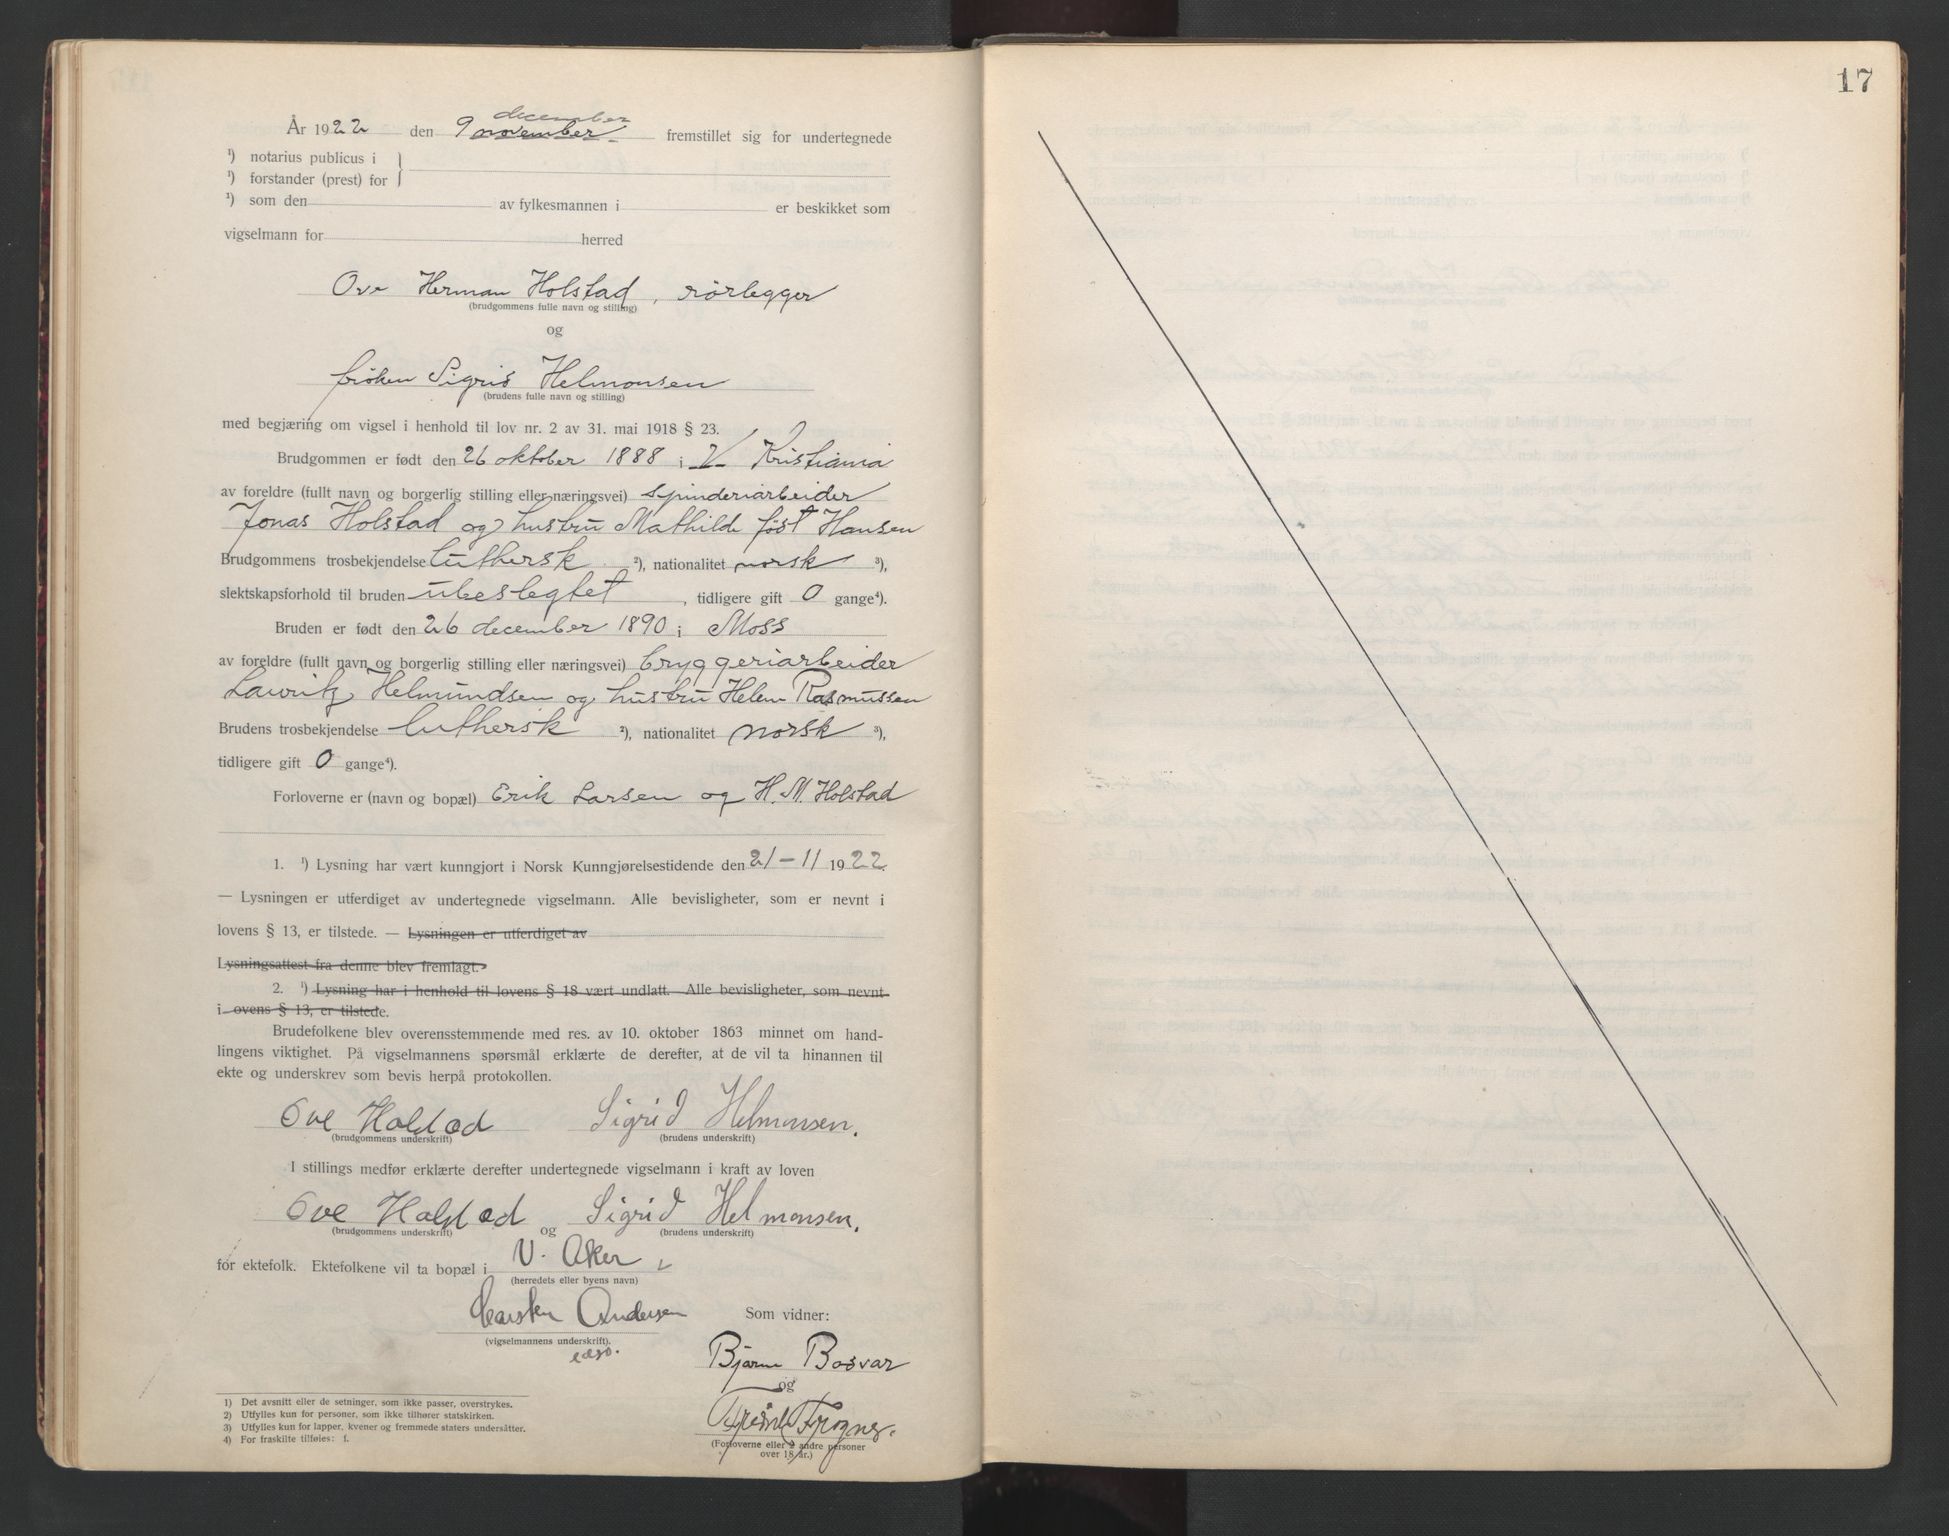 december
År 1922 den 9 november fremstillet sig for undertegnede
¹) notarius publicus i
¹) forstander (prest) for
¹) som den av fylkesmannen i er beskikket som
vigselmann for herred
Ove Herman Holstad, rørlegger
(brudgommens fulle navn og stilling)
og
frøken Sigrid Helmonsen
(brudens fulle navn og stilling)
med begjæring om vigsel i henhold til lov nr. 2 av 31. mai 1918 § 23.
Brudgommen er født den 26 oktober 1888 i Kristiania
av foreldre (fullt navn og borgerlig stilling eller næringsvei) spinderiarbeider
Jonas Holstad og hustru Mathilde født Hansen
Brudgommens trosbekjendelse luthersk ²), nationalitet norsk ³),
slektskapsforhold til bruden ubeslegtet, tidligere gift 0 gange⁴).
Bruden er født den 26 december 1890 i Moss
av foreldre (fullt navn og borgerlig stilling eller næringsvei) bryggeriarbeider
Lauritz Helmundsen og hustru Helene Rasmussen
Brudens trosbekjendelse luthersk ²), nationalitet norsk ³),
tidligere gift 0 gange⁴).
Forloverne er (navn og bopæl) Erik Larsen og H. M. Holstad
1. ¹) Lysning har vært kunngjort i Norsk Kunngjørelsestidende den 21-11 1922.
— Lysningen er utferdiget av undertegnede vigselmann. Alle bevisligheter, som er nevnt i
lovens § 13, er tilstede. — Lysningen er utferdiget av
Lysningsattest fra denne blev fremlagt.
2. ¹) Lysning har i henhold til lovens § 18 vært undlatt. Alle bevisligheter, som nevnt
i ovens § 13, er tilstede.
Brudefolkene blev overensstemmende med res. av 10. oktober 1863 minnet om hand-
lingens viktighet. På vigselmannens spørsmål erklærte de derefter, at de vil ta hinannen til
ekte og underskrev som bevis herpå protokollen.
Ove Holstad Sigrid Helmonsen.
(brudgommens underskrift) (brudens underskrift)
I stillings medfør erklærte derefter undertegnede vigselmann i kraft av loven
Ove Holstad og Sigrid Helmonsen.
(brudgommens underskrift) (brudens underskrift)
for ektefolk. Ektefolkene vil ta bopæl i V. Aker
(herredets eller byens navn)
Carsten Andersen Som vidner:
(vigselmannens underskrift).
Bjarne Bosvar
og
Frogner.
(Forloverne eller 2 andre personer
over 18 år.)
1) Det avsnitt eller de setninger, som ikke passer, overstrykes.
2) Utfylles kun for personer, som ikke tilhører statskirken.
3) Utfylles kun for lapper, kvener og fremmede staters undersåtter.
4) For fraskilte tilføies: f.
17